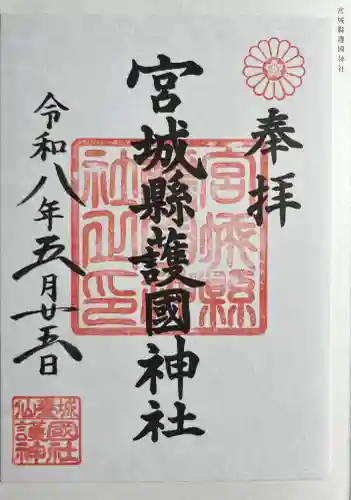 宮城縣護國神社
奉拝
宮城縣護國神社
令和八年五月廿五日
宮城縣
社之印
仙臺城
護國
神社